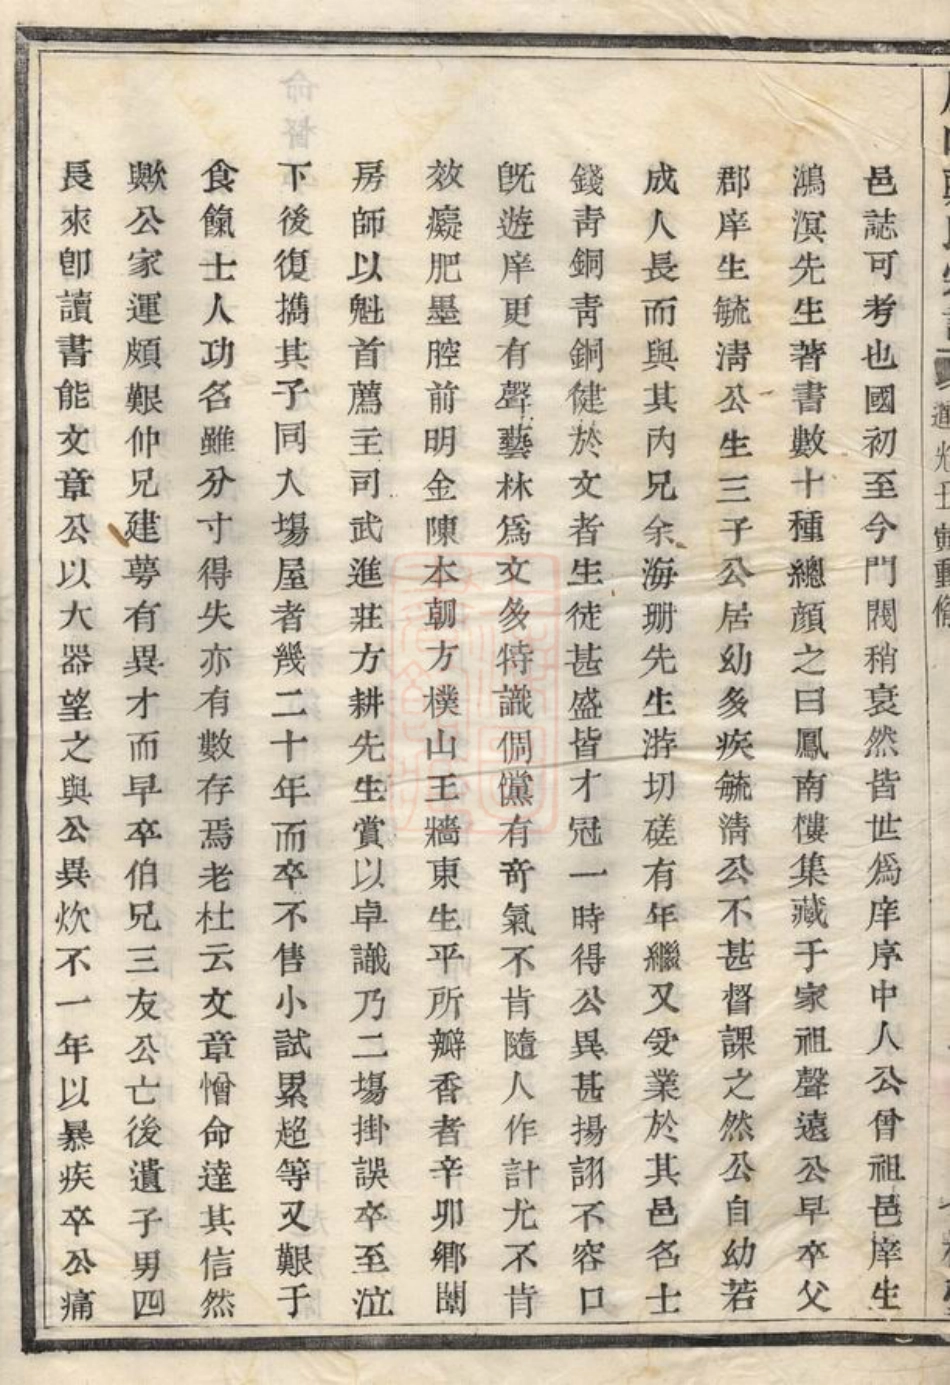 邑誌可考也國初至今門閥稍衰然皆世爲庠序中人公曾祖邑庠生
鴻溟先生著書數十種總顏之曰鳳南樓集藏于家祖聲遠公早卒父
郡庠生毓淸公生三子公居幼多疾毓淸公不甚督課之然公自幼若
成人長而與其內兄余海珊先生游切磋有年繼又受業於其邑名士
錢靑銅靑銅健於文者生徒甚盛皆才冠一時得公異甚揚詡不容口
旣遊庠更有聲藝林爲文多特識倜儻有奇氣不肯隨人作計尤不肯
效癡肥墨腔前明金陳本朝方樸山王牆東生平所瓣香者辛卯鄉闈
房師以魁首薦主司武進莊方耕先生賞以卓識乃二塲掛誤卒至泣
下後復擕其子同入塲屋者幾二十年而卒不售小試累超等又艱于
食餼士人功名雖分寸得失亦有數存焉老杜云文章憎命達其信然
歟公家運頗艱仲兄建蕚有異才而早卒伯兄三友公亡後遺子男四
長來卽讀書能文章公以大器望之與公異炊不一年以暴疾卒公痛